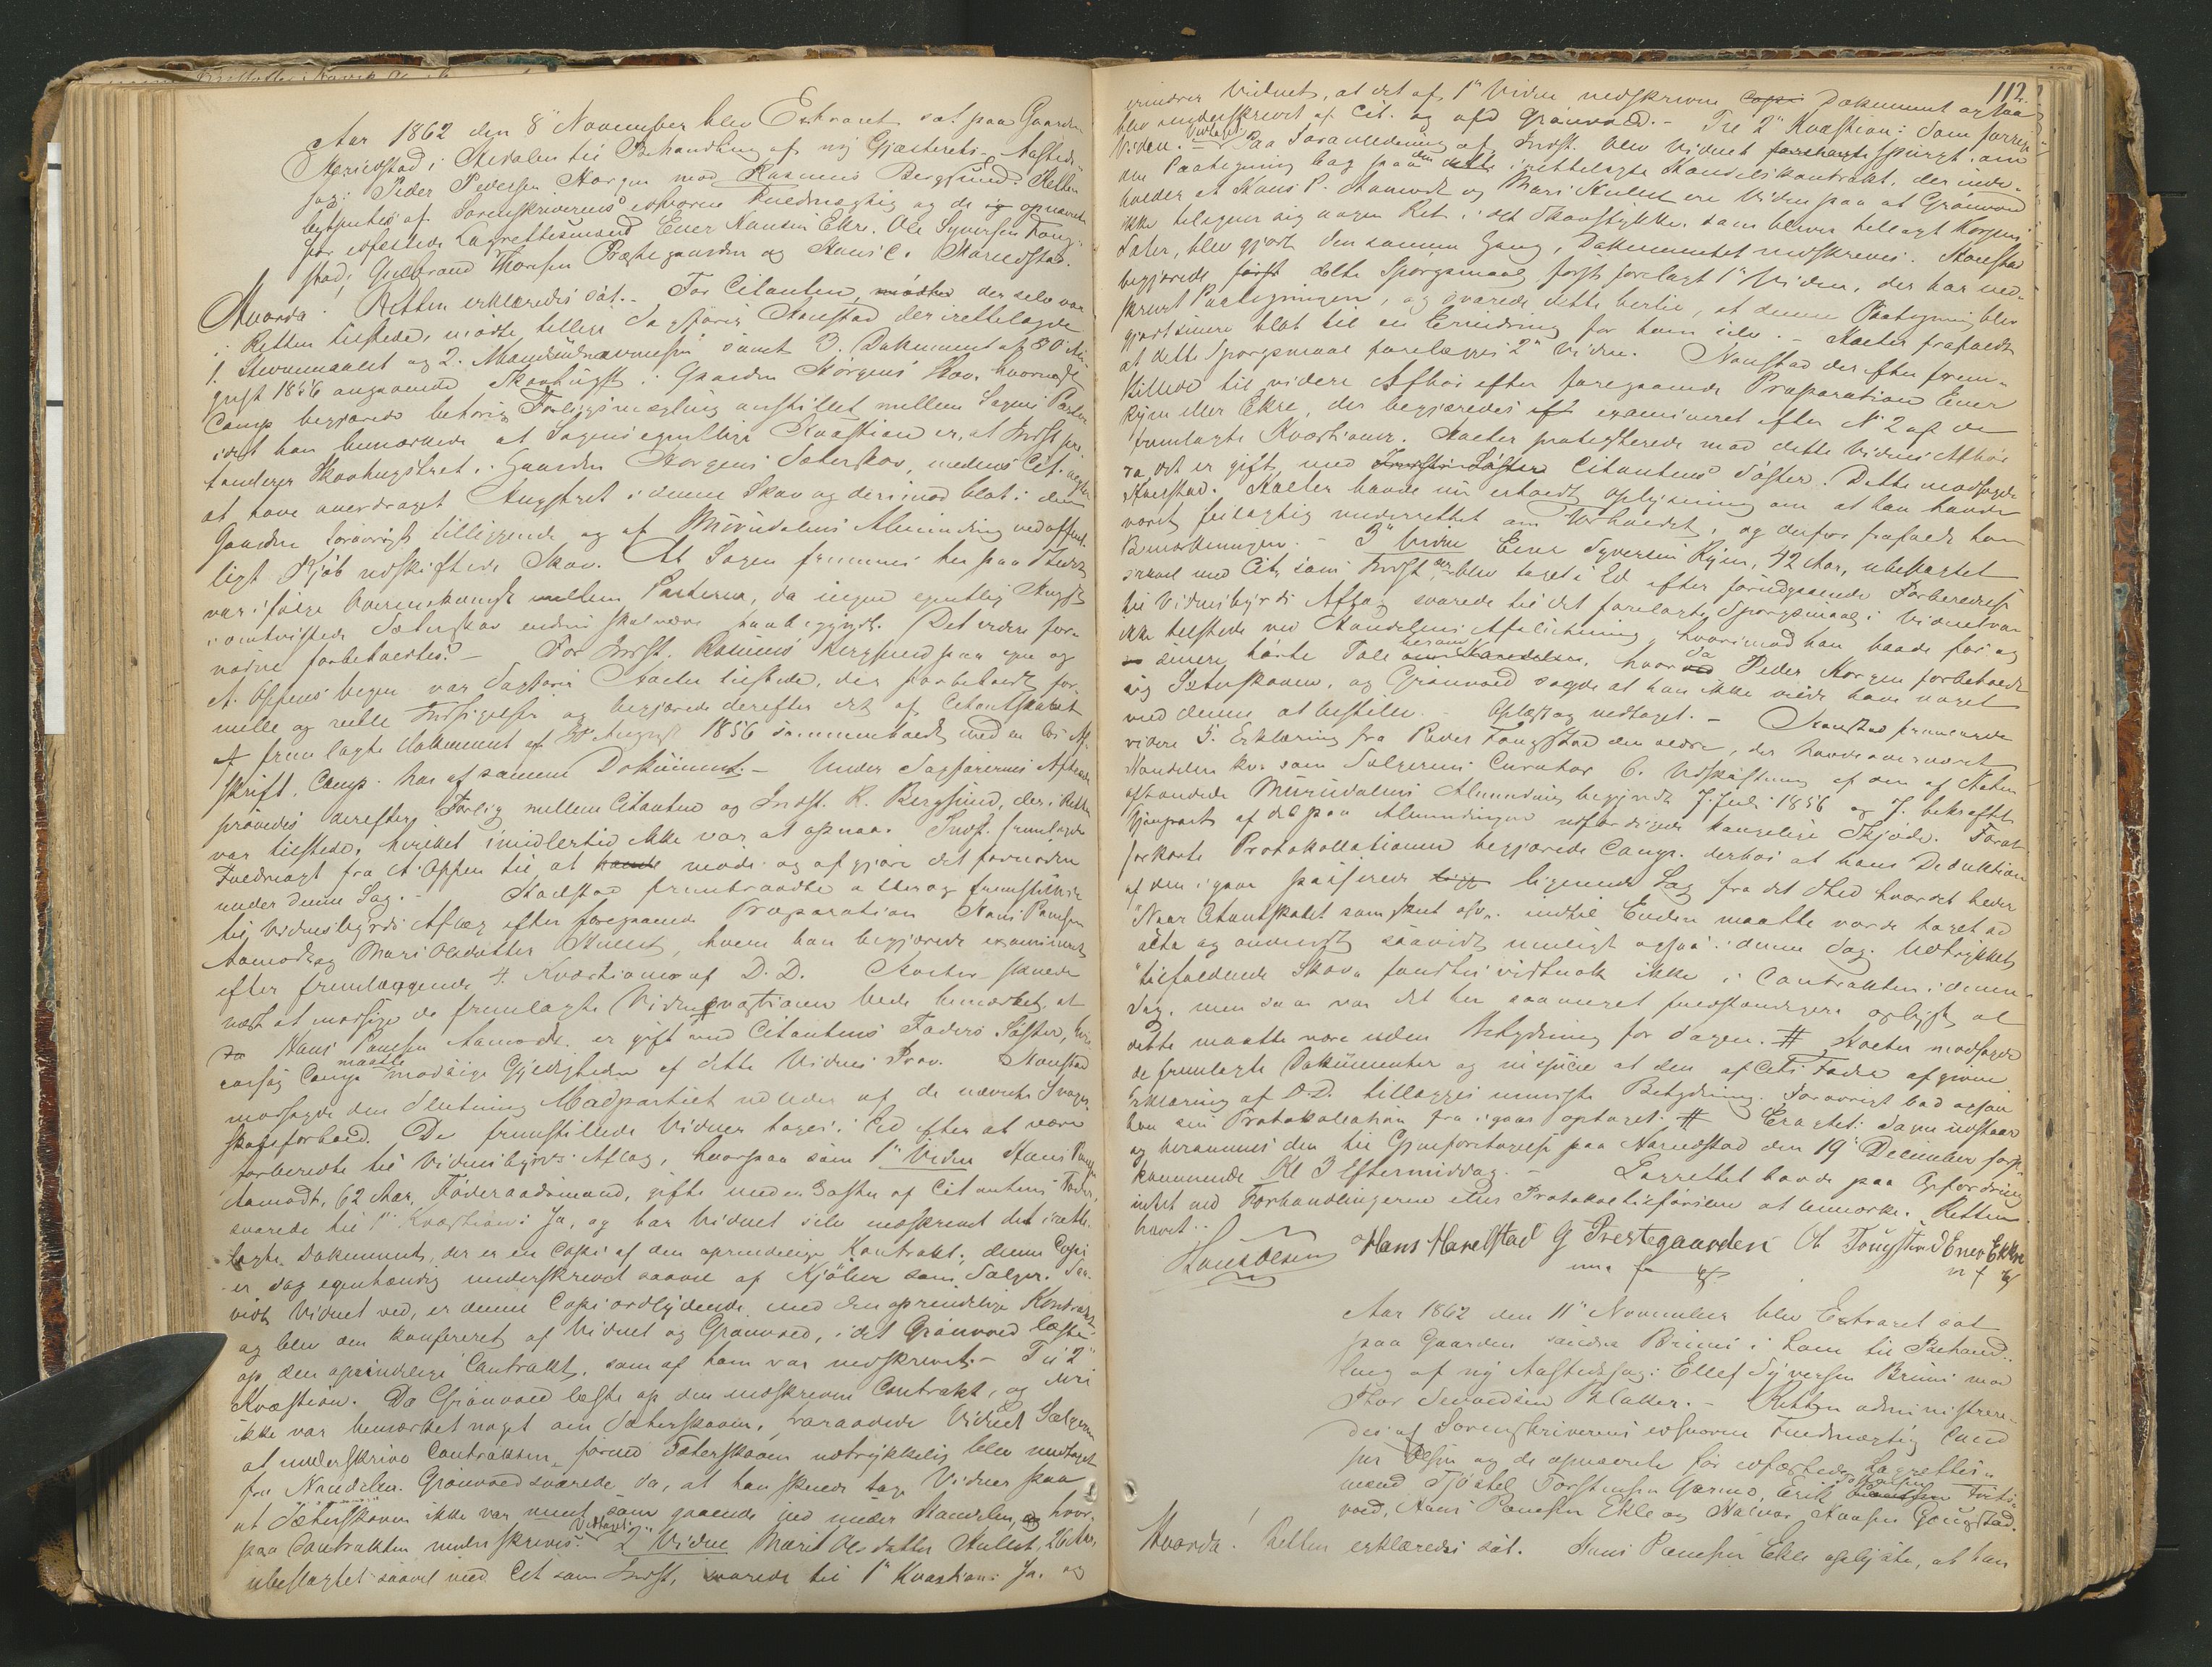 Aar 1862 den 8 November blev Extraret sat paa Gaarden
Marielstad i Hedalen til Behandling af ny Gjæsterets- Aasteds-
sag: Peder Pedersen Korgen mod Rasmus Bergsund. Retten
betjentes af Sorenskriverens edsvorne Fuldmægtig og de opnævnte
før edfæstede Lagrettesmænd Ener Hansen Ekre, Ole Syversen Toug-
stad, Gulbrand Thoresen Præstegaarden og Hans C. Harildstad.
Hvorda! Retten erklæredes sat. - For Citanten, der selv var
i Retten tilstede, mødte tillige Sagfører Haustad der irettelagde
1. Stevnemaalet og 2. Mændsudnævnelsen samt 3. Dokument af 30 Au-
gust 1856 angaaende Skovhugst i Gaarden Korgens Skov, hvornæst
Comp. begjærede behørig Forligsmægling anstillet mellem Sagens Parter
idet han bemærkede at Sagens egentlige Kvæstion er, at Indst. præ-
tenderer Skovhugstret i Gaarden Korgens Sæterskov, medens Cit. negter
at have overdraget Hugstret i denne Skov og derimod blot i den
Gaarden forøvrigt tilliggende og af Murudalens Alminding ved offent-
ligt Kjøb udskiftede Skov. At Sagen fremmes her paa Stedet
var ifølge Overenskomst mellem Parterne, da ingen egentlig Hugst
i omtvistede Sæterskov endnu skal være paabegyndt. Det videre for-
nødne forbeholdtes. - For Indst. Rasmus Bergsund paa egne og
A. Oppens vegne var Sagfører Kaeter tilstede, der forbeholdt for-
melle og reelle Indsigelser og begjærede derefter det af Citantskabet
fremlagte Dokument af 30 August 1856 sammenholdt med en
skrift, Comp. har af samme Dokument. - Under Sagførernes Aftræden
prøvedes derefter Forlig mellem Citanten og Indst. R. Bergsund, der i Retten
var tilstede, hvilket imidlertid ikke var at opnaa. Indst. fremlagde
Fuldmagt fra A. Oppen til at møde og afgjøre det fornødne
under denne Sag. - Haustad frembrandte og fremstillede
til Vidnesbyrds Aflæg efter foregaaende Præparation Hans Paulsen
Aamodt og Mari Olsdatter Hulset, hvem han begjærede examineret
efter fremlæggende 4. Kvæstioner af D.D. Kaeter
næst at modsige de fremlagte Vidneqvæstioner bede bemærket, at
da Hans Paulsen Aamodt er gift med Citantens Faders Søster,
aarsag Comp. maatte modsige Gyldigheden af dette Vidnes Prov. Haustad
modsagde den Slutning Modpartiet udleder af de nævnte Svoger-
skabsforhold. De fremstillede Vidner toges i Ed efter at være
forberedte til Vidnesbyrds Aflæg, hvorpaa som 1ste Vidne Hans Paulsen
Aamodt, 62 Aar, Føderaadsmand, gifte med en Søster af Citantens Fader,
svarede til 1ste Kvæstion: Ja, og har Vidnet selv nedskrevet det irette-
lagte Dokument, der er en Copi af den oprindelige Kontrakt; denne Copi
er dog egenhændig underskrevet saavel af Kjøber som Sælger. Saa-
vidt Vidnet ved, er denne Copi ordlydende med den oprindelige Kontrakt
og blev den konfereret af Vidnet og Grönvold, idet Grönvold læste
op den oprindelige Contrakt, som af ham var nedskrevet. - Til 2
Kvæstion. Da Grönvold læste op den nedskrevne Contrakt, og deri
ikke var bemærket noget om Sæterskoven, foraadede Vidnet Sælgeren
at underskrive Contrakten, førend Sæterskoven udtrykkelig blev undtaget
fra Handelen. Grönvold svarede da, at han skulde tage Vidner paa
at Sæterskoven ikke var ment som gaaende ind under Handelen, hvor-
paa Contrakten underskreves. Vidtaget. 2 Vidne Marit Olsdatter Hulset, 26 Aar,
ubeslægtet saavel med Cit som Indst, svarede til 1ste Kvæstion: Ja, og
112.
erindrer Vidnet, at det af 1ste Vidne nedskrevne Dokument ogsaa
blev underskrevet af Cit. og afd Grönvold. - Til 2 Kvæstion: Som forrige
Vidne. Vedtaget. Paa Foranledning af Indst. blev Vidnet spurgt, om
den Paategning bag paa den irettelagte Handelskontrakt, der inde-
holder at Hans P. Aamodt og Mari Hulset ere Vidner paa at Grönvold
ikke tilegner sig nogen Ret i det Skovstykke, som bliver tillagt Korgens
Sæter, blev gjort den samme Gang, Dokumentet nedskreves. Haustad
begjærede dette Spørgsmaal først forelagt 1ste Vidne, der har ned-
skrevet Paategningen, og svarede dette hertil, at denne Paategning blev
gjort senere blot til en Erindring for ham selv. - Kaeter frafaldt
at dette Spørgsmaal forelægges 2 Vidne. Haustad der efter frem-
stillede til videre Afhør efter foregaaende Præparation Ener
Rÿen eller Ekre, der begjæredes examineret efter N 2 af de
fremlagte Kvæstioner. Kaeter protesterede mod dette Vidnes Afhør
da det er gift med Citantens Søster. Dette modsagde
Haustad. Kaeter havde nu erholdt Oplysning om at han havde
været feilagtig underrettet om Forholdet, og derfor frafaldt han
Bemærkningen. - 3 Vidne Ener Syversen Rÿen, 42 Aar, ubeslægtet
saavel med Cit som Indst, blev taget i Ed efter foregaaende Forberedelse
til Vidnesbyrds Aflæg svarede til det forelagte Spørgsmaal: Vidnet var
ikke tilstede ved Handelens Afslutning, hvorimod han baade før og
senere hørte Tale herom, hvor da Peder Korgen forbeholdt
sig Sæterskoven, og Grönvold sagde at han ikke vilde have noget
med denne at bestille. - Oplæst og vedtaget. - Haustad fremlagde
videre 5. Erklæring fra Peder Tougstad den ældre, der havde overværet
Handelen som Sælgerens Curator 6. Udskiftning af den af Staten
afhændede Murudalens Alminding begyndt 7. Juli 1856 og 7. bekræftet
Gjenpart af det paa Almindingen udfærdigede kongelige Skjøde. Foraf
forkorte Protokollationen begjærede Comp. derhos at hans Deduktion
af den igaar paaførede lignende Sag fra det Sted hvor det heder
"Naar Citantskabet som skeet osv." indtil Enden maatte vorde taget ad
acta og anvendt saavidt muligt ogsaa i denne Sag. Udtrykket
"tilfaldende Skov" fandtes vistnok ikke i Contrakten i denne
Sag, men saa var det her saameget fuldstændigere oplyst at
dette maatte være uden Betydning for Sagen. # Kaeter modsagde
de fremlagte Dokumenter og at den af Cits Fader afgivne
Erklæring af D.D. tillægges mindste Betydning. Forøvrigt bad ogsaa
han sin Protokollation fra igaar optaget. # Eragtet: Sagen udstaar
og berammes den til Gjenforetagelse paa Harildstad den 19 December først-
kommende Kl 3 Eftermiddag. - Lagrettet havde paa Opfordring
intet ved Forhandlingerne eller Protokoltilførslen at bemærke. Retten
hævet.
Hans Olsen Hans Harelstad G Prestegaarden Ol Tougstad Ener Ekre
m f P
Aar 1862 den 11 November blev Extraret sat
paa Gaarden søndre Brimi i Lom til Behand-
ling af ny Aastedssag: Ellef Syversen Brimi mod
Thor Sevaldsen Blakker. - Retten administrere-
des af Sorenskriverens edsvorne Fuldmægtig Cand
jur Olsen og de opnævnte før edfæstede Lagrettes-
mænd Tjøstel Torstensen Garmo, Erik Frits-
vold, Hans Paulsen Ekle og Halvor Hansen Gaugstad.
Hvorda! Retten erklæredes sat. Hans Paulsen Ekle oplyste, at han